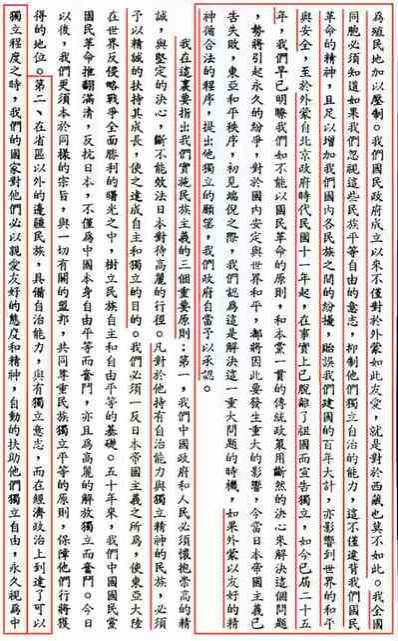 為殖民地加以壓制。我們國民政府成立以來不僅對於外蒙如此友愛,就是對於西藏也莫不如此。我全國
同胞必須知道如果我們忽視這些民族平等自由的意志,抑制他們獨立自治的能力,這不僅違背我們國民
革命的精神,且足以增加我們國內各民族之間的紛擾,貽誤我們建國的百年大計,亦影響到世界的和平
與安全,至於外蒙自北京政府時代民國十一年起,在事實上已脫離了祖國而宣告獨立,如今已屆二十五
年,我們早已明瞭我們如不能以國民革命的原則,和本黨一貫的傳統政策用斷然的決心來解決這個問題
,勢將引起永久的紛爭,對於國內安定與世界和平,都將因此要發生重大的影響,今當日本帝國主義已
告失敗,東亞和平秩序,初見端倪之際,我們認為這是解決這一重大問題的時機,如果外蒙以友好的精
神循合法的程序,提出他獨立的願望,我們政府自當予以承認。
我在這裏要指出我們實施民族主義的三個重要原則:第一,我們中國政府和人民必須懷抱崇高的精
誠,與堅定的決心,斷不能效法日本對待高麗的行徑。凡對於他持有自治能力與獨立精神的民族,必須
予以精誠的扶持其成長,使之達成自主和獨立的目的。我們必須一反日本帝國主義之所為,使東亞大陸
在世界反侵略戰爭全面勝利的曙光之中,樹立民族自主和自由平等的基礎。五十年來,我們中國國民黨
國民革命推翻滿清,反抗日本,不僅為中國本身自由平等而奮鬥,亦且為高麗的解放獨立而奮鬥。今日
以後,我們更須本於同樣的宗旨,與一切有關的盟邦,共同尊重民族獨立平等的原則,保障他們行將獲
得的地位。第二、在省區以外的邊疆民族,具備自治能力,與有獨立意志,而在經濟政治上到達了可以
獨立程度之時,我們的國家對他們必以親愛友好的態度和精神,自動的扶助他們獨立自由,永久視為中